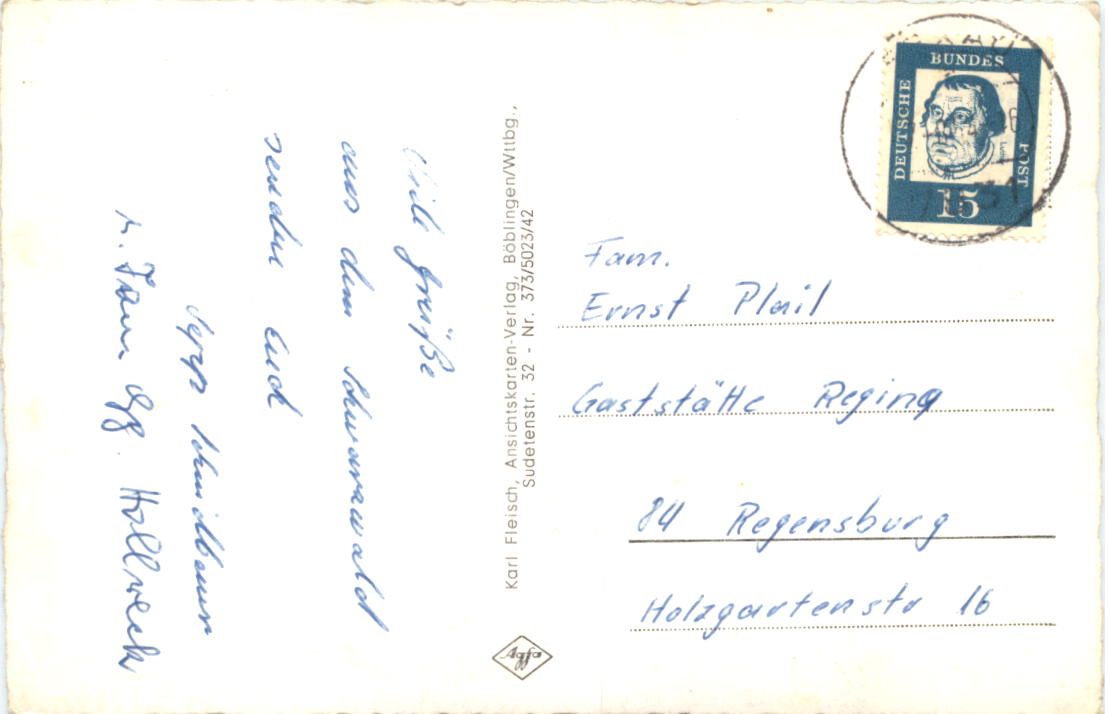 Viele Grüße
aus dem Schwarzwald
senden Euch
Sepp Schmidbauer
u. Fam. Hollweck
Karl Fleisch, Ansichtskarten-Verlag, Böblingen/Wttbg.,
Sudetenstr. 32 - Nr. 373/5023/42
Agfa
DEUTSCHE
BUNDES
POST
15
Fam.
Ernst Plail
Gaststätte Regina
84 Regensburg
Holzgartenstr 16